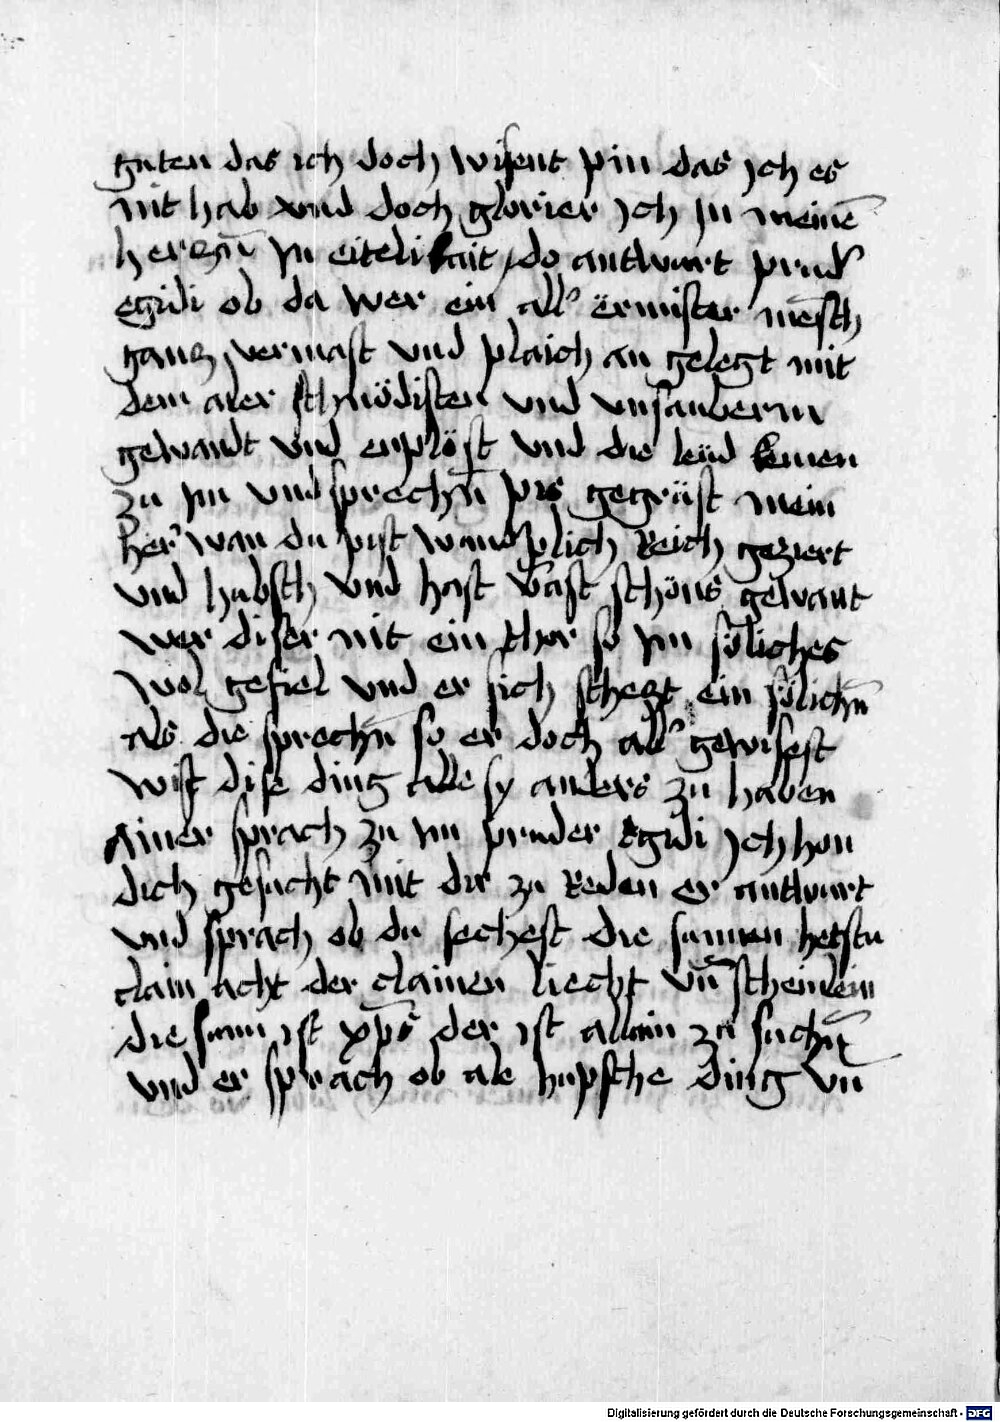 guten das ich doch wisent pin das jch es
nit hab vnd doch glorier jch jn meinē
herczn̄ jn eitelikait / do antwurt prud᷑
egidi ob da wer ein all᷑ ërmister mēsch
gancz vermast vnd plaich an gelegt mit
dem aler schnödisten vnd vnsauberm
gewandt vnd enplöst vnd die leüd kemen
zu jm vnd sprechn̄ pis gegrüst mein
her᷑ wan du pist wund᷑plich Reich geziert
vnd hubsch vnd hast vast schöns gewant
wer diser nit ein thor so jm söliches
wol gefiel vnd er sich schetzt ein sölichn̄
als die sprechn̄ so er doch all᷑ gewisest
wist dise ding alle sy anders zu haben
Ainer sprach zu jm pruder Egidi jch hon
dich gesucht mit dir zu Reden er antwurt
vnd sprach ob du sechest die sunnen hetstu
clain acht der clainen liecht vn̄ scheinlein
die sunn ist xp̄s der ist allain zu suchn̄
vnd er sprach ob ale hupsche ding vn̄
Digitalisierung gefördert durch die Deutsche Forschungsgemeinschaft - DFG